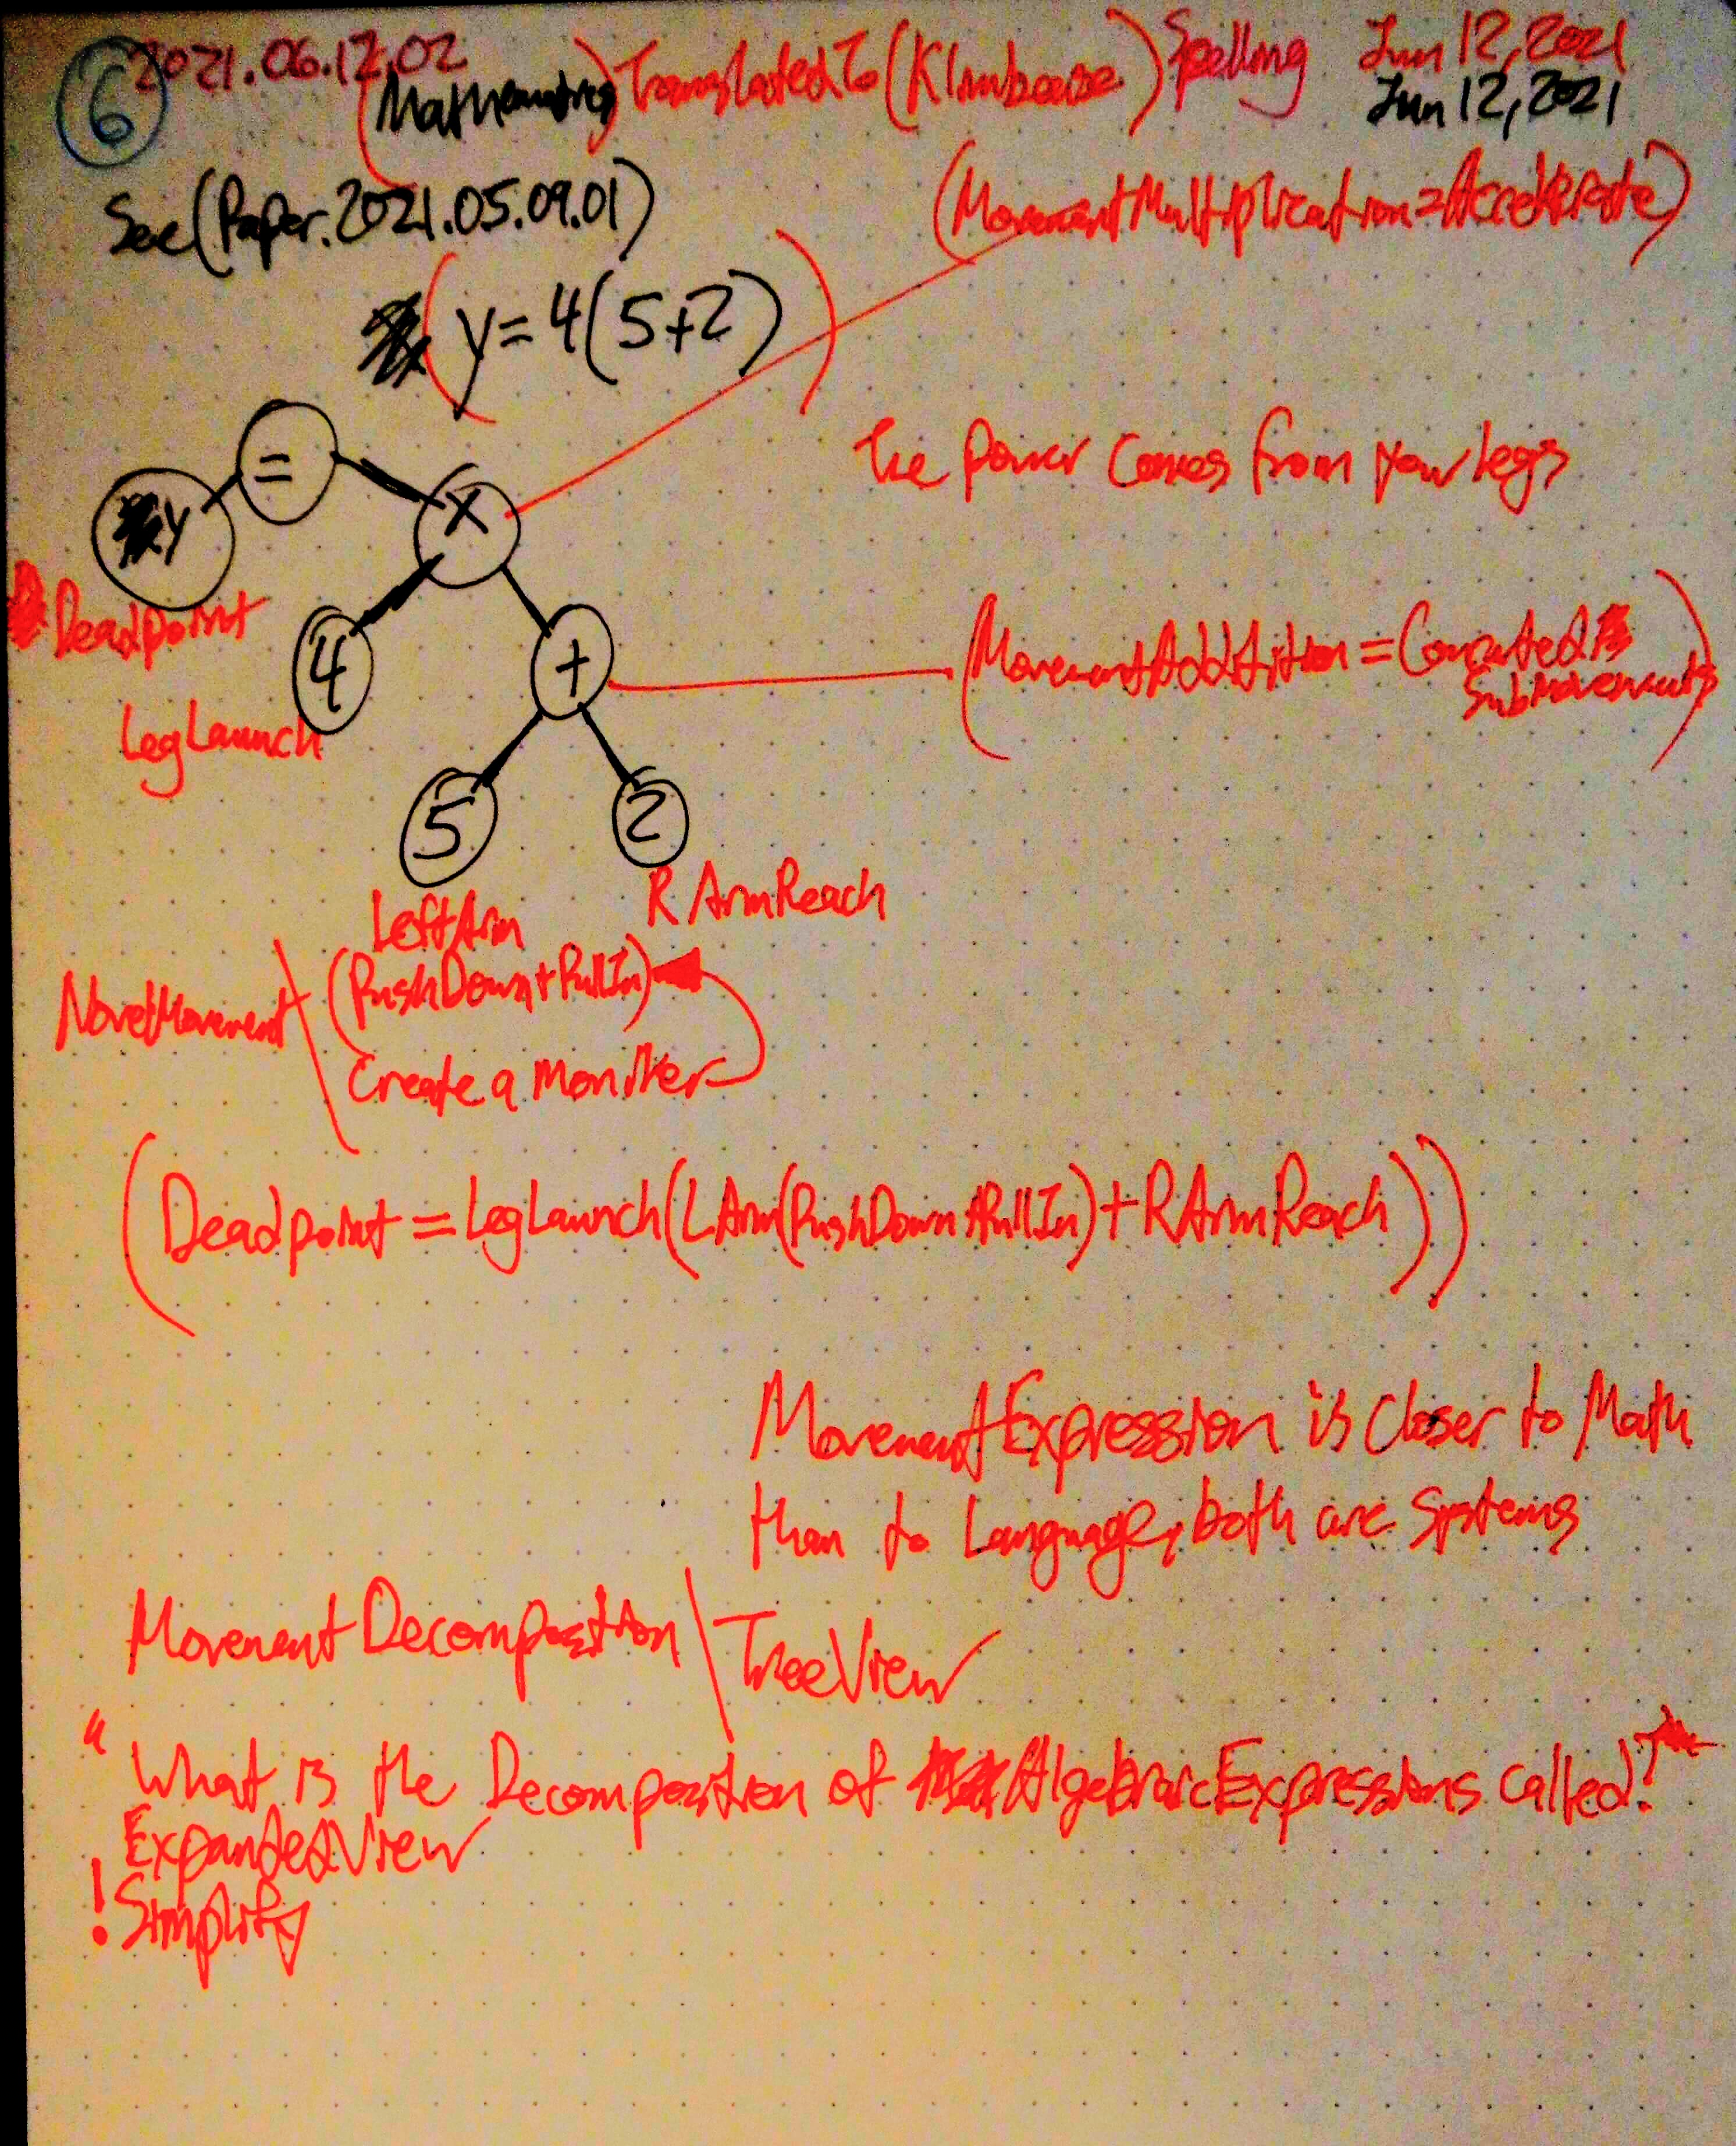 6
2021.06.12.02
(Mathematics) TranslatedTo (Klimbcase) Spelling
Jun 12, 2021
Jun 12, 2021
See (Paper.2021.05.09.01)
(MovementMultiplication = Accelerate)
(y = 4(5+2))
The Power Comes from your Legs
=
y
x
Deadpoint
4
+
(MovementAddition = Connected
SubMovements)
LegLaunch
5
2
LeftArm
R ArmReach
NovelMovement \ (PushDown + PullIn)
Create a Moniker
(Deadpoint = LegLaunch(LArm(PushDown+PullIn) + RArmReach))
MovementExpression is Closer to Math
than to Language, both are Systems
MovementDecomposition \ TreeView
"What is the Decomposition of AlgebraicExpressions called?"
ExpandedView
! Simplify